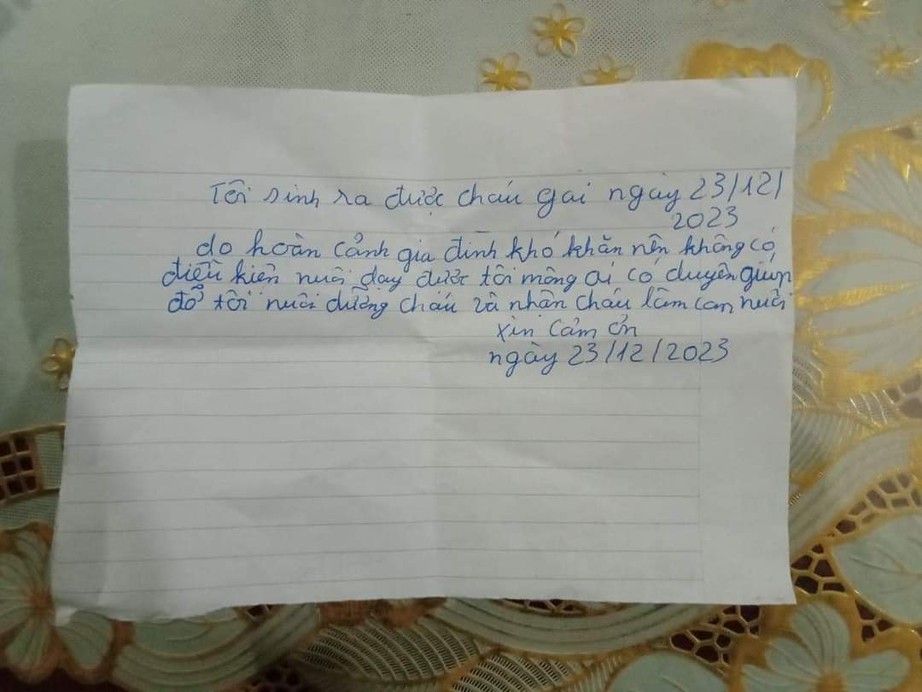 Tôi sinh ra được cháu gái ngày 23/12/
2023
do hoàn cảnh gia đình khó khăn nên không có
điều kiện nuôi dạy được tôi mong ai có duyên giúp
đỡ tôi nuôi dưỡng cháu và nhân cháu làm con nuôi
xin cảm ơn
ngày 23/12/2023